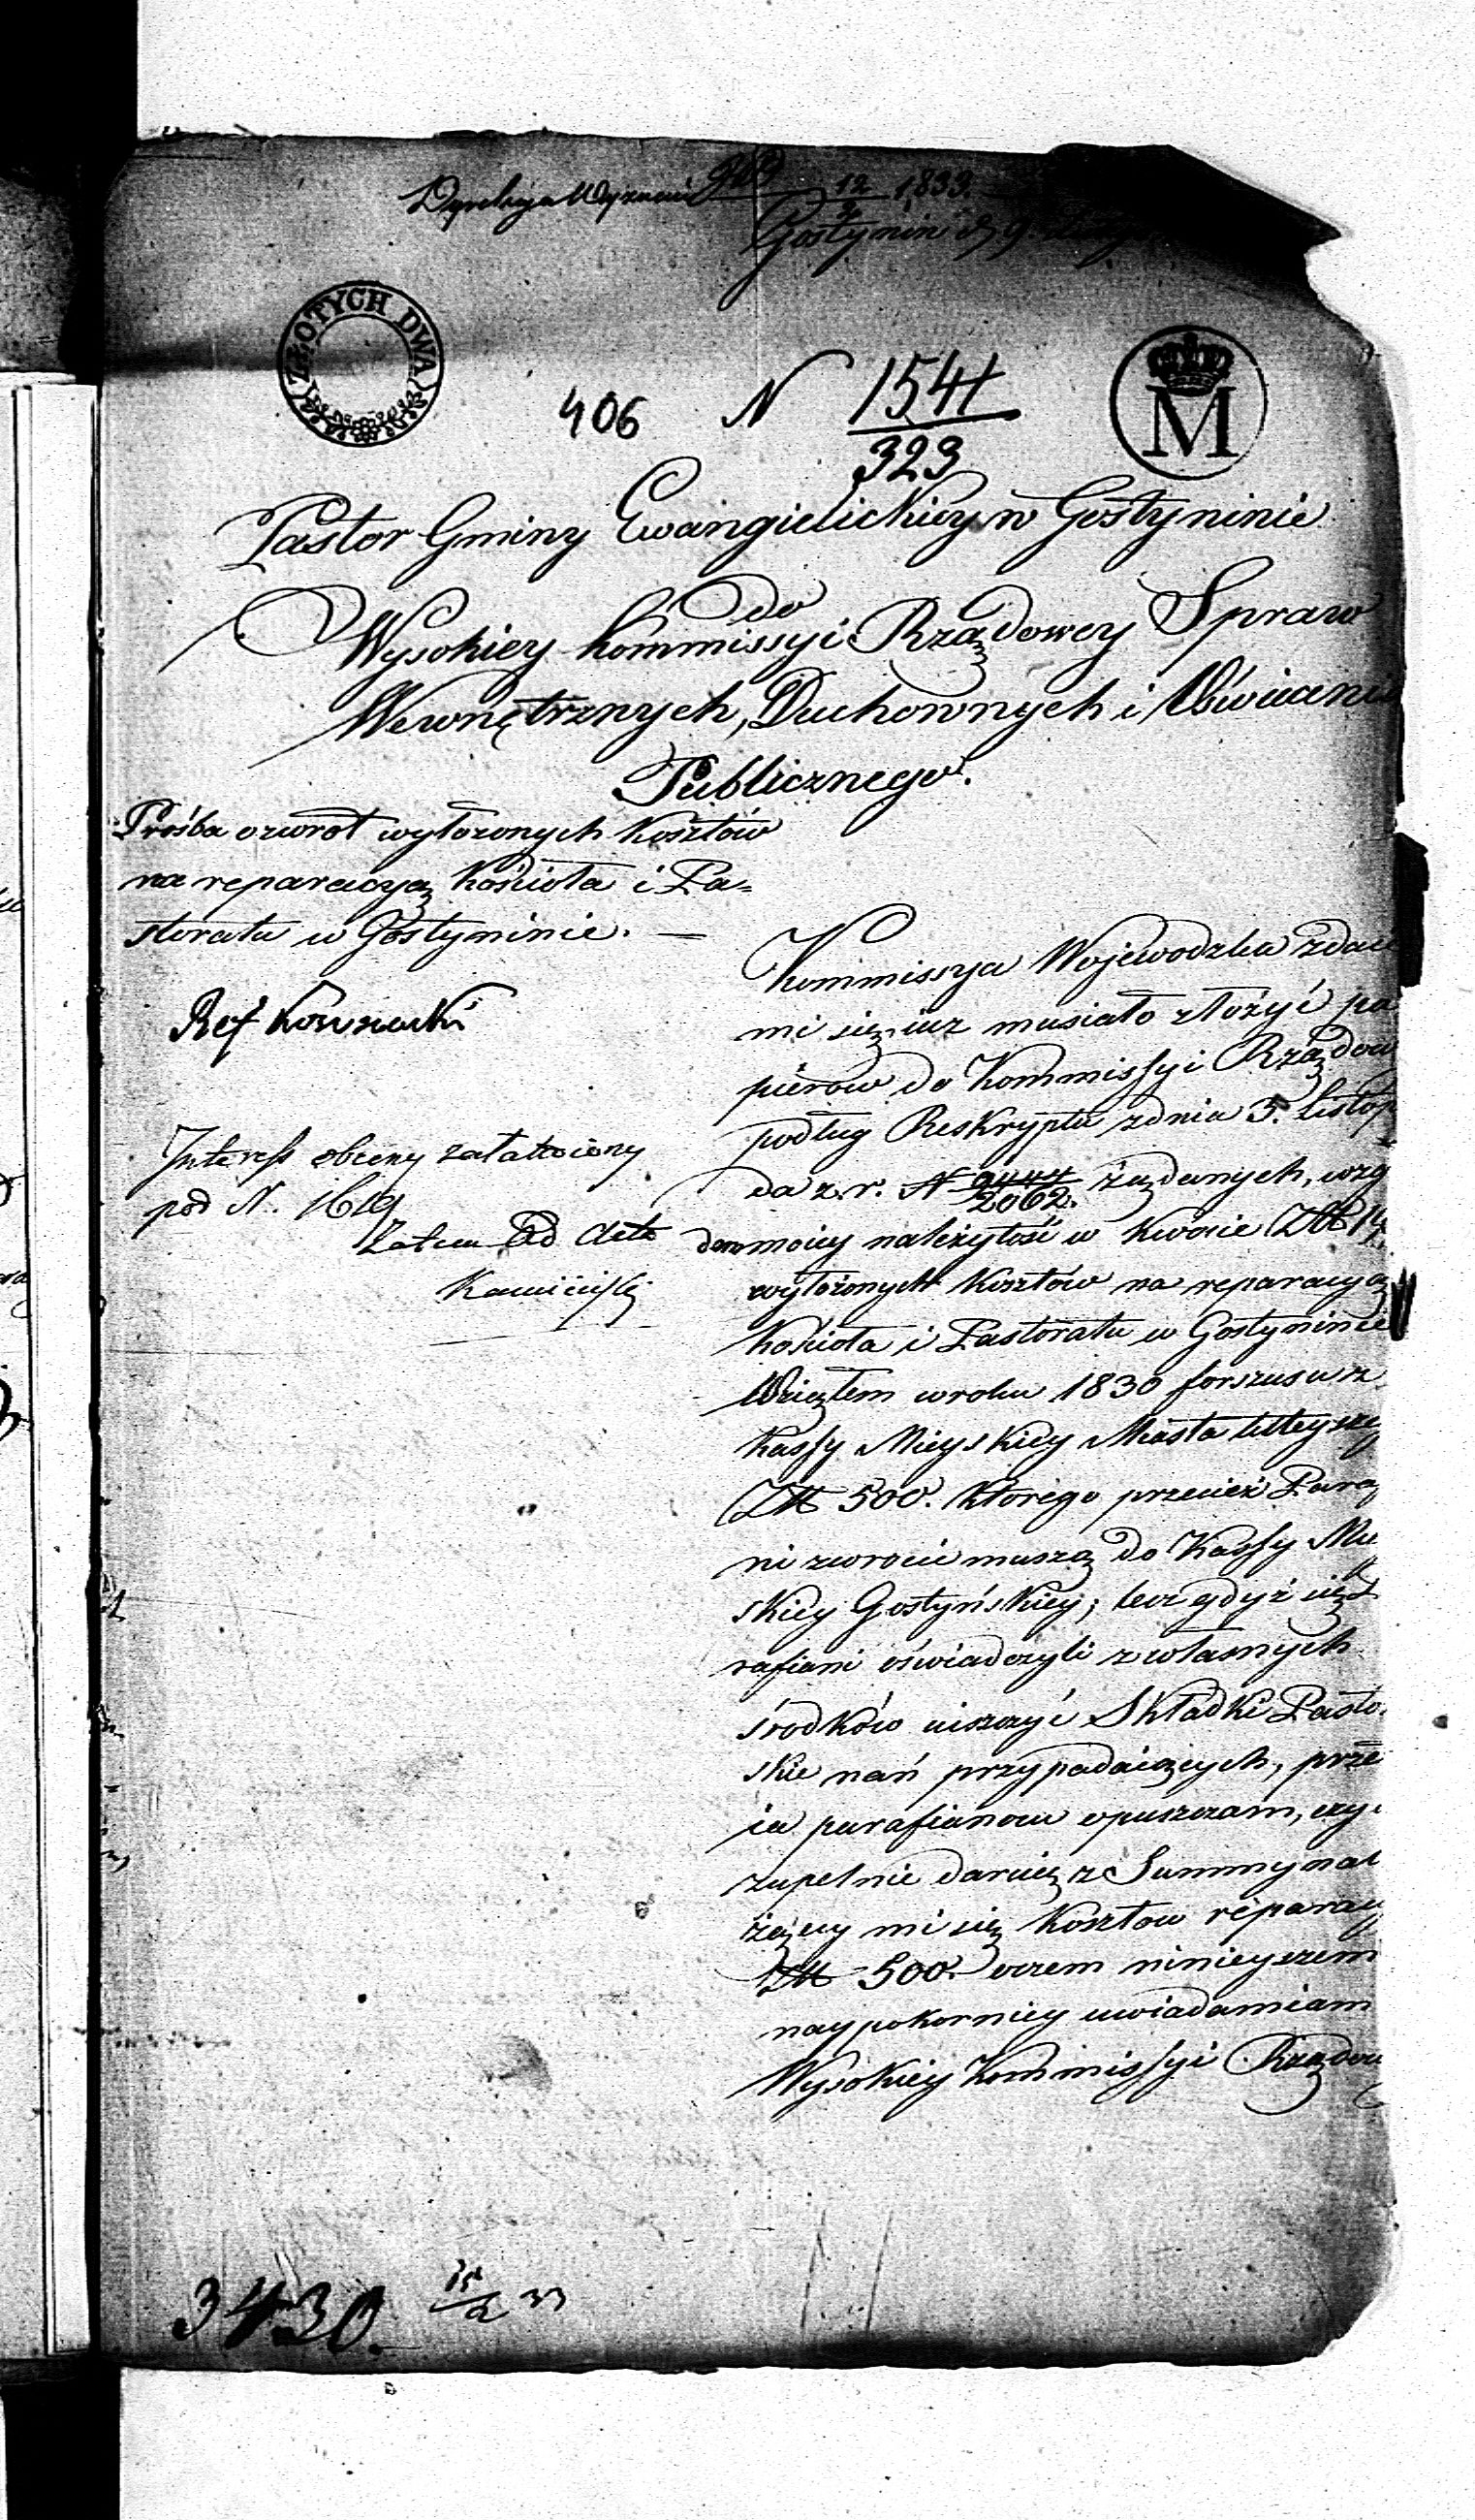 Dyrekcya Wyznań 12/2 1833.
Gostynin d 9
ZŁOTYCH DWA
406 N 1541/323
M
Pastor Gminy Ewangielickiey w Gostyninie
do
Wysokiey Kommissyi Rządowey Spraw
Wewnętrznych, Duchownych i Oświeceni
Publicznego.
Prośba o zwrot wyłożonych kosztów
na reparacyą kościoła i Pa=
storatu w Gostyninie. —
Ref
Interess obecny załatwiony
pod N. 1619
Zatem Ad Acta
Kamiński
Kommissya Wojewodzka zdaie
mi się, iuż musiało złożyć pa
pierów do Kommissyi Rządow
podług Reskryptu z dnia 5. Listop
da z. r. N 9444/2062. żądanych, wzg
dem moiey należytość w kwocie Złł 14
wyłożonych kosztów na reparacyą
kościoła i Pastoratu w Gostyninie
Wziąłem w roku 1830 forszusu z
Kassy Mieyskiey Miasta tuteysze
Złł 500. którego przecież Para
ni zwrocić muszą do Kassy Mie
skiey Gostyńskiey; lecz gdyż się P
rafiani oświadczyli z własnych
środków uiszczyć Składki Pasto
skie nań przypadaiących, prze
ia parafianom opuszczam, czy
zupełnie daruię z Summy nal
żący mi się kosztow reparacy
Złł 500. oczem ninieyszem
naypokorniey uwiadamiam
Wysokiey Kommissyi Rządow
3430. 15/2 33